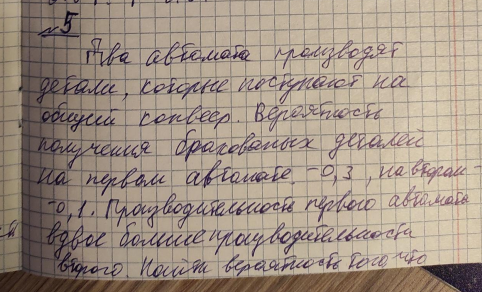 №5
Два автомата производят
детали, которые поступают на
общий конвеер. Вероятность
получения бракованых деталей
на первом автомате -0,3, на втором -
-0,1. Производительность первого автомата
вдвое больше производительности
второго. Найти вероятность того что